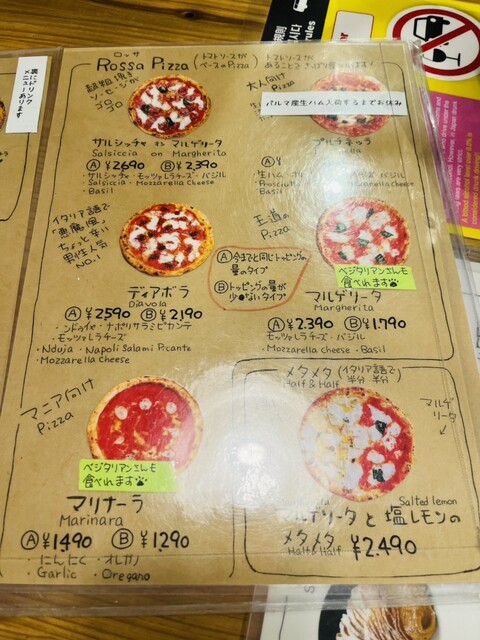 裏にドリンク
メニューあります
ロッサ
Rossa Pizza
トマトソースが
ベースのPizza
トマトソースが
粗挽き
ソーセージが
サルシッチャ オン マルゲリータ
Salsiccia on Margherita
Ⓐ ¥2690 Ⓑ ¥2,390
・サルシッチャ・モッツァレラチーズ・バジル
・Salsiccia・Mozzarella Cheese
・Basil
大人向け
Pizza
パルマ産生ハム入荷するまでお休み
Ⓐ ¥
・生ハム
Mozzarella Cheese
・Basil
イタリア語で
「悪魔風」
ちょっと辛い
男性人気
NO.1
ディアボラ
Diavola
Ⓐ ¥2590 Ⓑ ¥2190
・ンドゥイヤ・ナポリサラミピカンテ
・モッツァレラチーズ
・Nduja・Napoli Salami Picante
・Mozzarella Cheese
Ⓐ 今までと同じトッピングの
量のタイプ
Ⓑ トッピングの量が
少ないタイプ
王道の
Pizza
ベジタリアンさんも
食べれます
マルゲリータ
Margherita
Ⓐ ¥2.390 Ⓑ ¥1.790
モッツァレラチーズ・バジル
・Mozzarella cheese・Basil
マニア向け
Pizza
ベジタリアンさんも
食べれます
マリナーラ
Marinara
Ⓐ ¥1490 Ⓑ ¥1290
・にんにく・オレガノ
・Garlic・Oregano
メタメタ (イタリア語で
半分 半分)
Half & Half
マルゲ
リータ
↓
Salted lemon
マルゲリータ と 塩レモンの
メタメタ
Half & Half
¥2.490